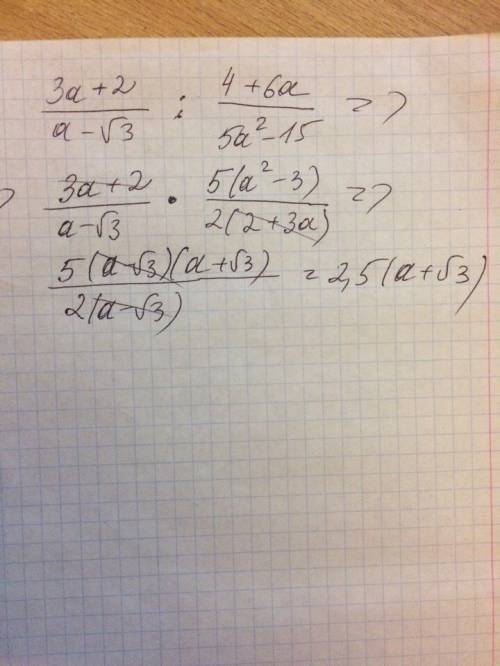 (3a+2)/(a-√3) : (4+6a)/(5a²-15) =>
(3a+2)/(a-√3) · 5(a²-3)/2(2+3a) =>
5(a-√3)(a+√3)/2(a-√3) = 2,5(a+√3)